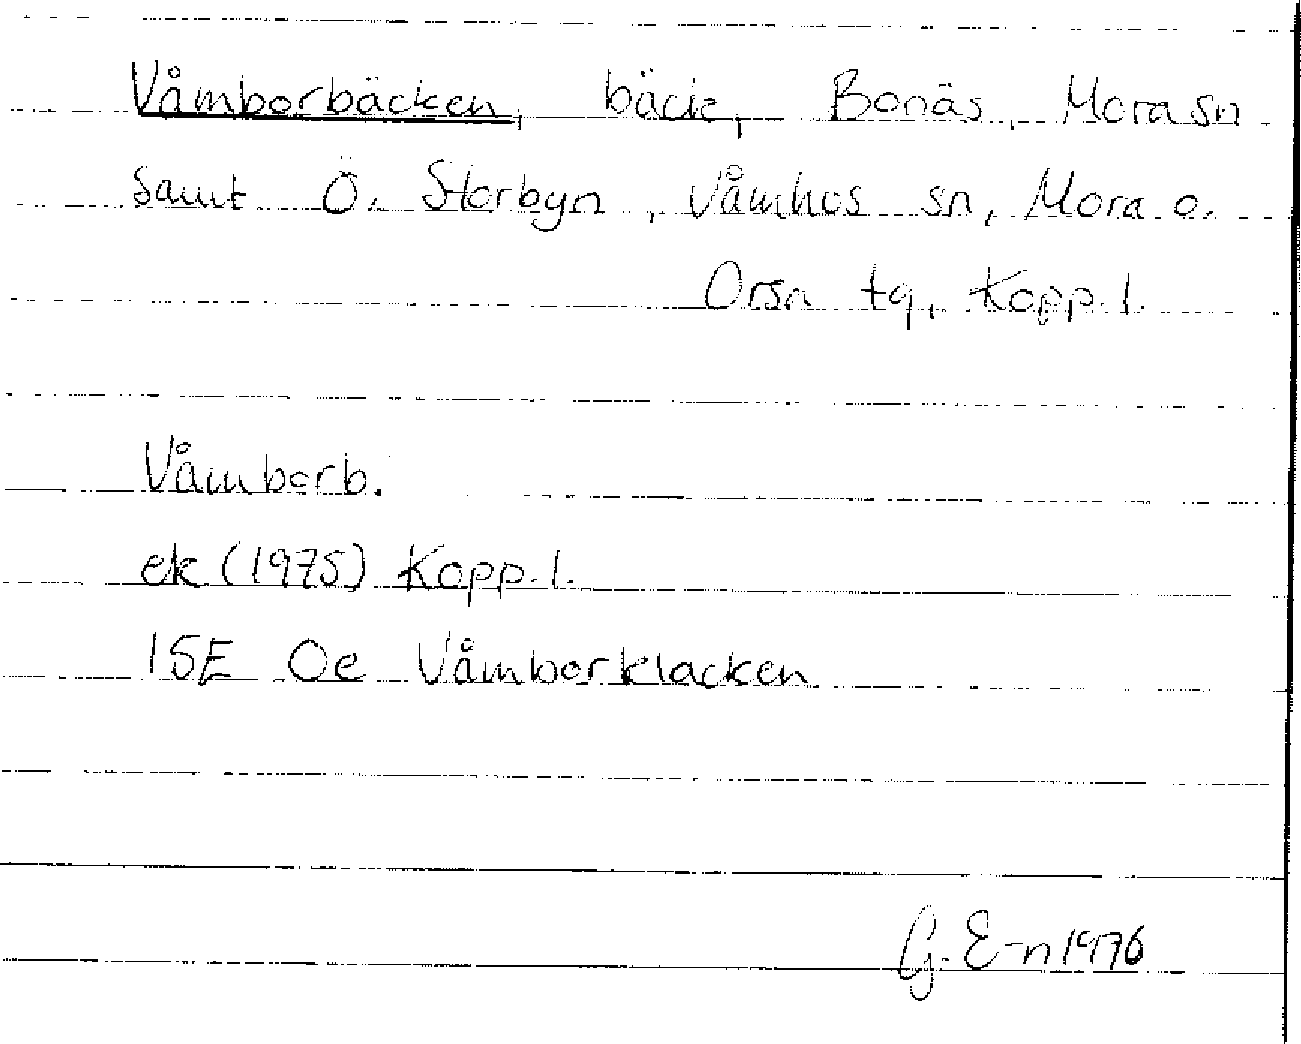 Våmborbäcken, bäck, Bonäs, Mora sn
samt Ö. Storbyn, Våmhus sn, Mora o.
Orsa tg, Kopp. l.
Våmborb.
ek (1975) Kopp. l.
15E 0e Våmborklacken
G. E-n 1976